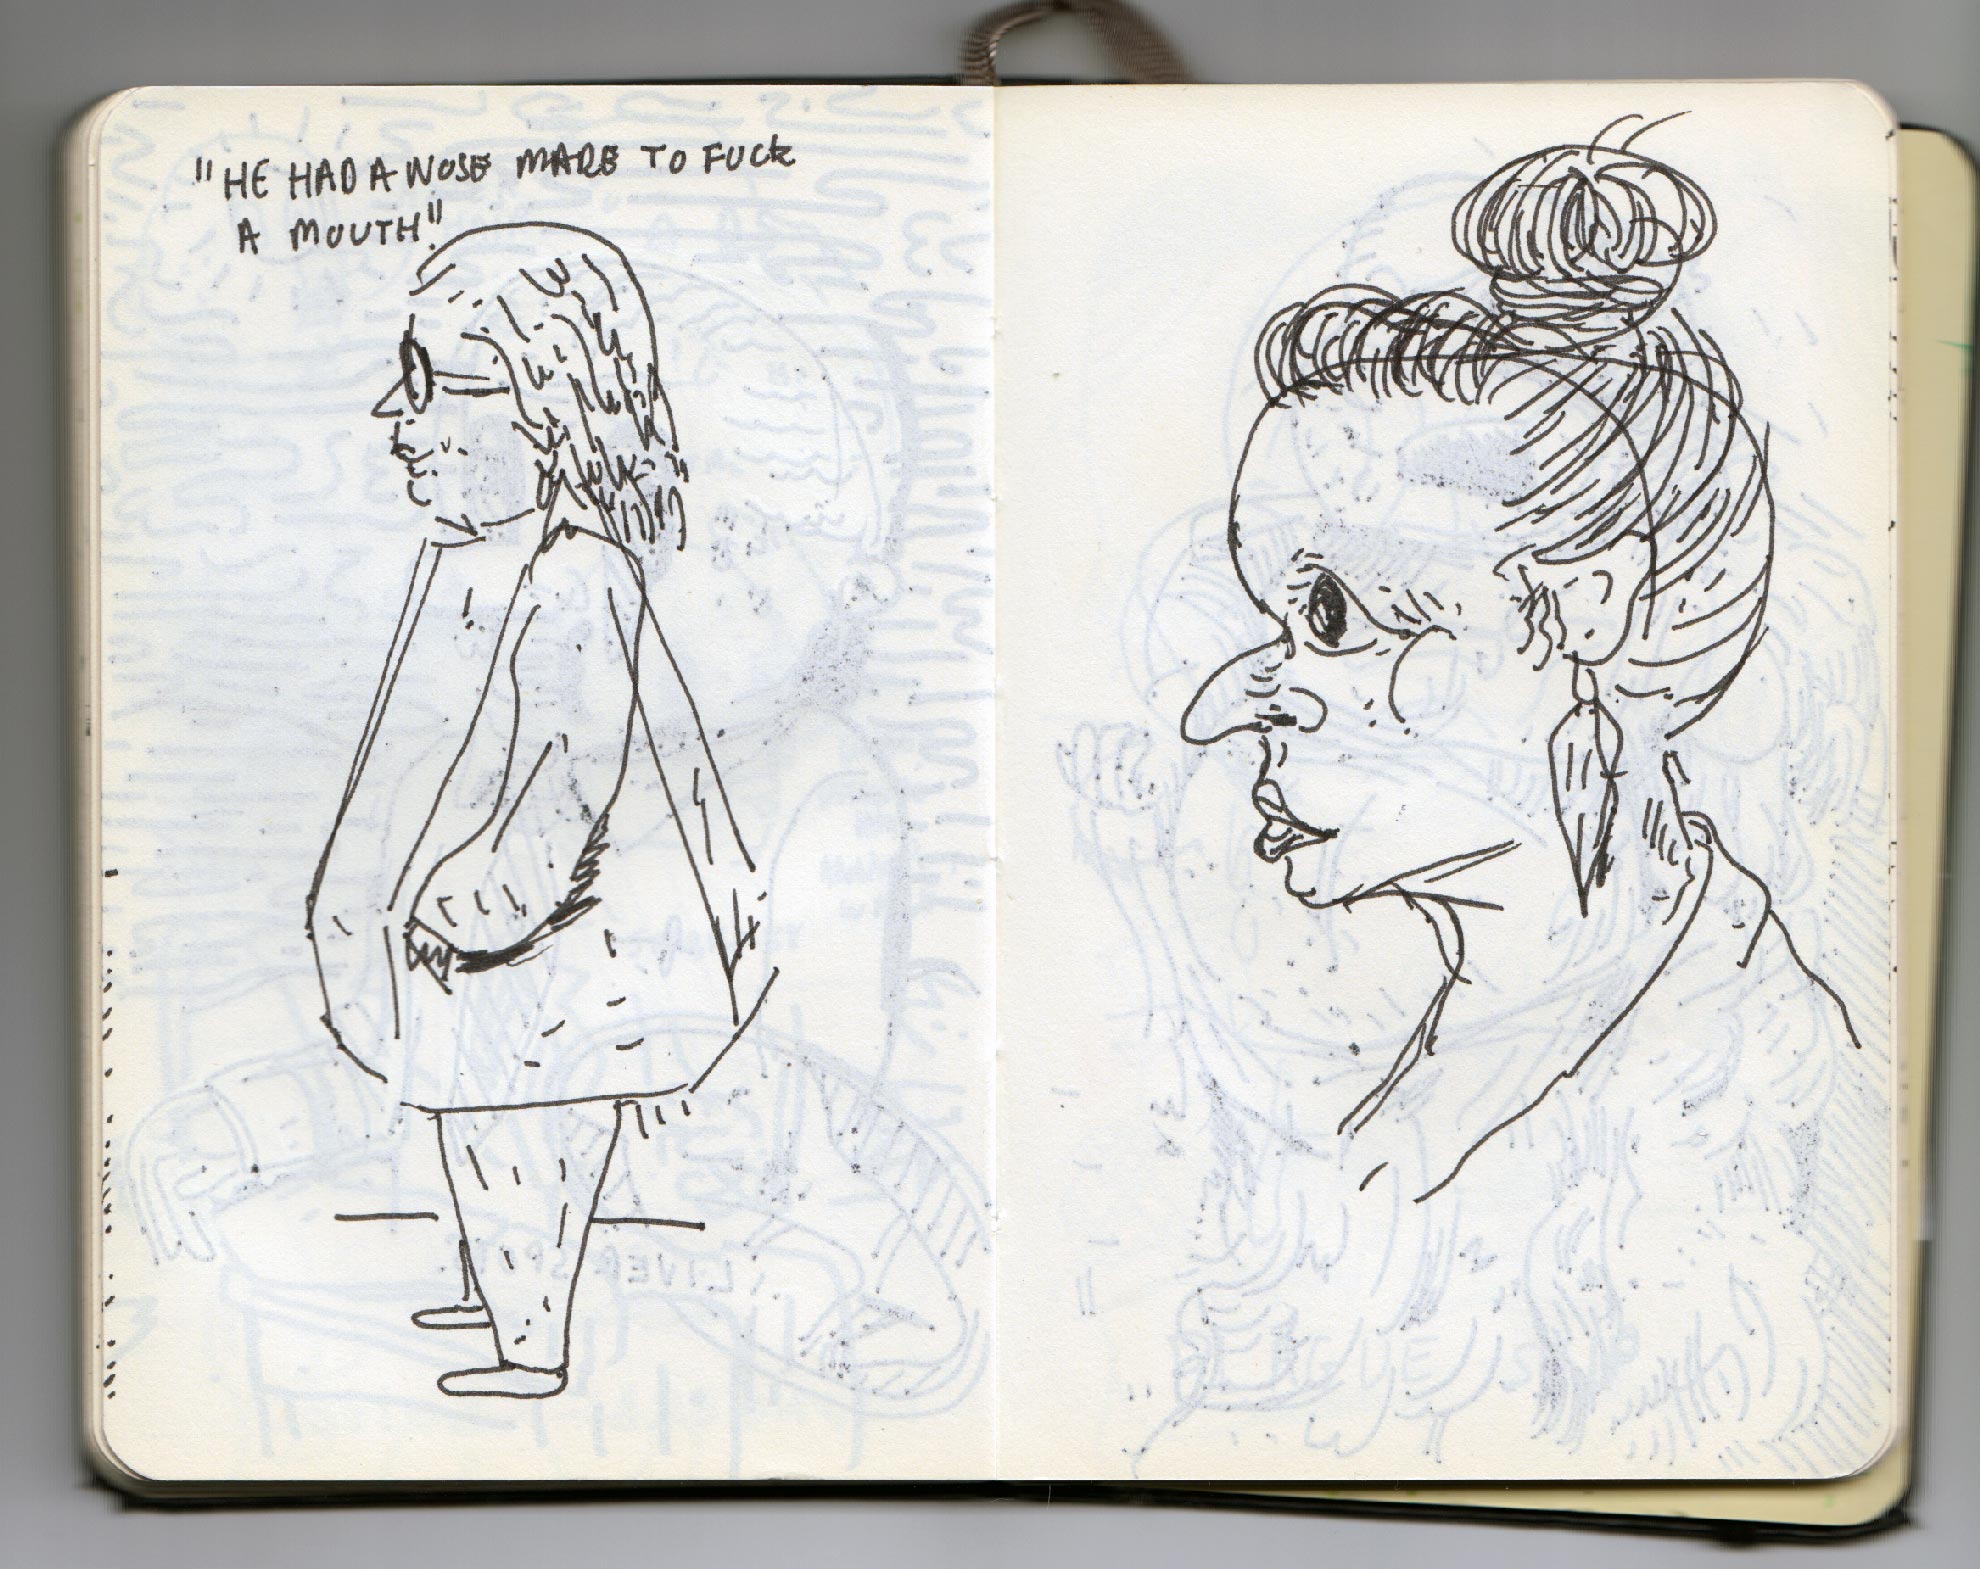 "HE HAD A NOSE MADE TO FUCK
A MOUTH"